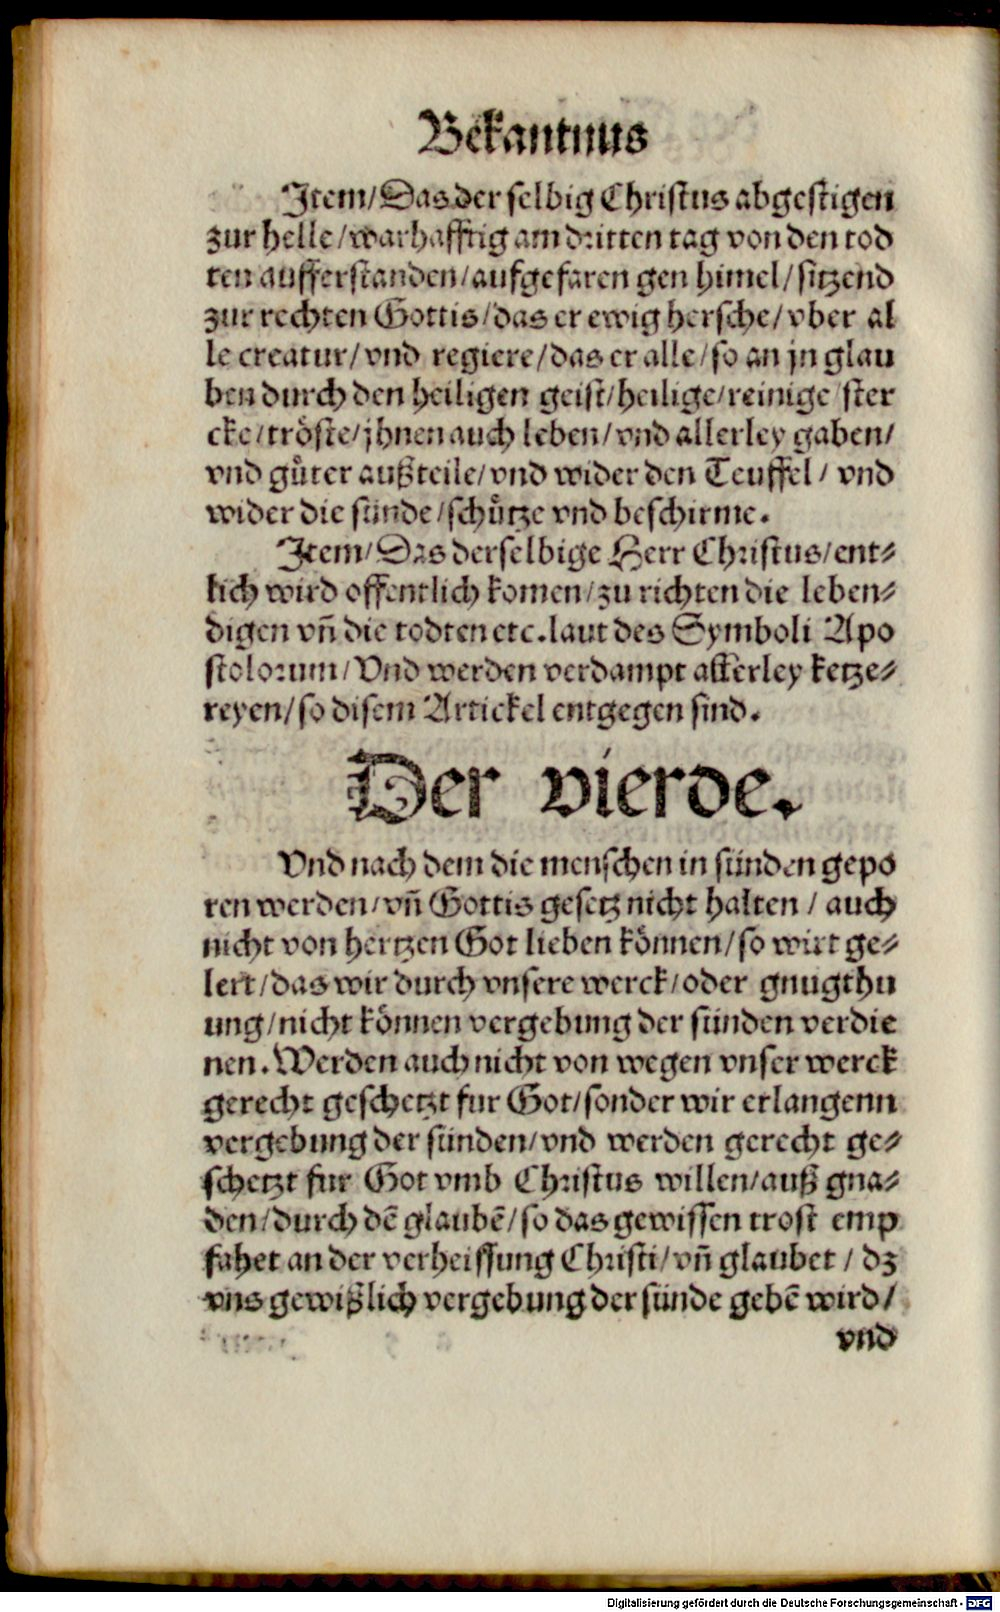 Bekantnus
Item/Das der selbig Christus abgestigen
zur helle/warhafftig am dritten tag von den tod
ten aufferstanden/aufgefaren gen himel/sitzend
zur rechten Gottis/das er ewig hersche/vber al
le creatur/vnd regiere/das er alle/so an jn glau
ben durch den heiligen geist/heilige/reinige/ster
cke/tröste/jhnen auch leben/vnd allerley gaben/
vnd gůter außteile/vnd wider den Teuffel/ vnd
wider die sünde/schůtze vnd beschirme.
Item/Das derselbige Herr Christus/ent⸗
lich wird offentlich komen/zu richten die leben⸗
digen vñ die todten etc. laut des Symboli Apo
stolorum/Vnd werden verdampt allerley ketze⸗
reyen/so disem Artickel entgegen sind.
Der vierde.
Vnd nach dem die menschen in sünden gepo
ren werden/vñ Gottis gesetz nicht halten / auch
nicht von hertzen Got lieben können/so wirt ge⸗
lert/das wir durch vnsere werck/oder gnugthu
ung/nicht können vergebung der sünden verdie
nen. Werden auch nicht von wegen vnser werck
gerecht geschetzt fur Got/sonder wir erlangenn
vergebung der sünden/vnd werden gerecht ge⸗
schetzt für Got vmb Christus willen/auß gna⸗
den/durch dē glaubē/so das gewissen trost emp
fahet an der verheissung Christi/vñ glaubet / dz
vns gewißlich vergebung der sünde gebē wird/
vnd
Digitalisierung gefördert durch die Deutsche Forschungsgemeinschaft - DFG